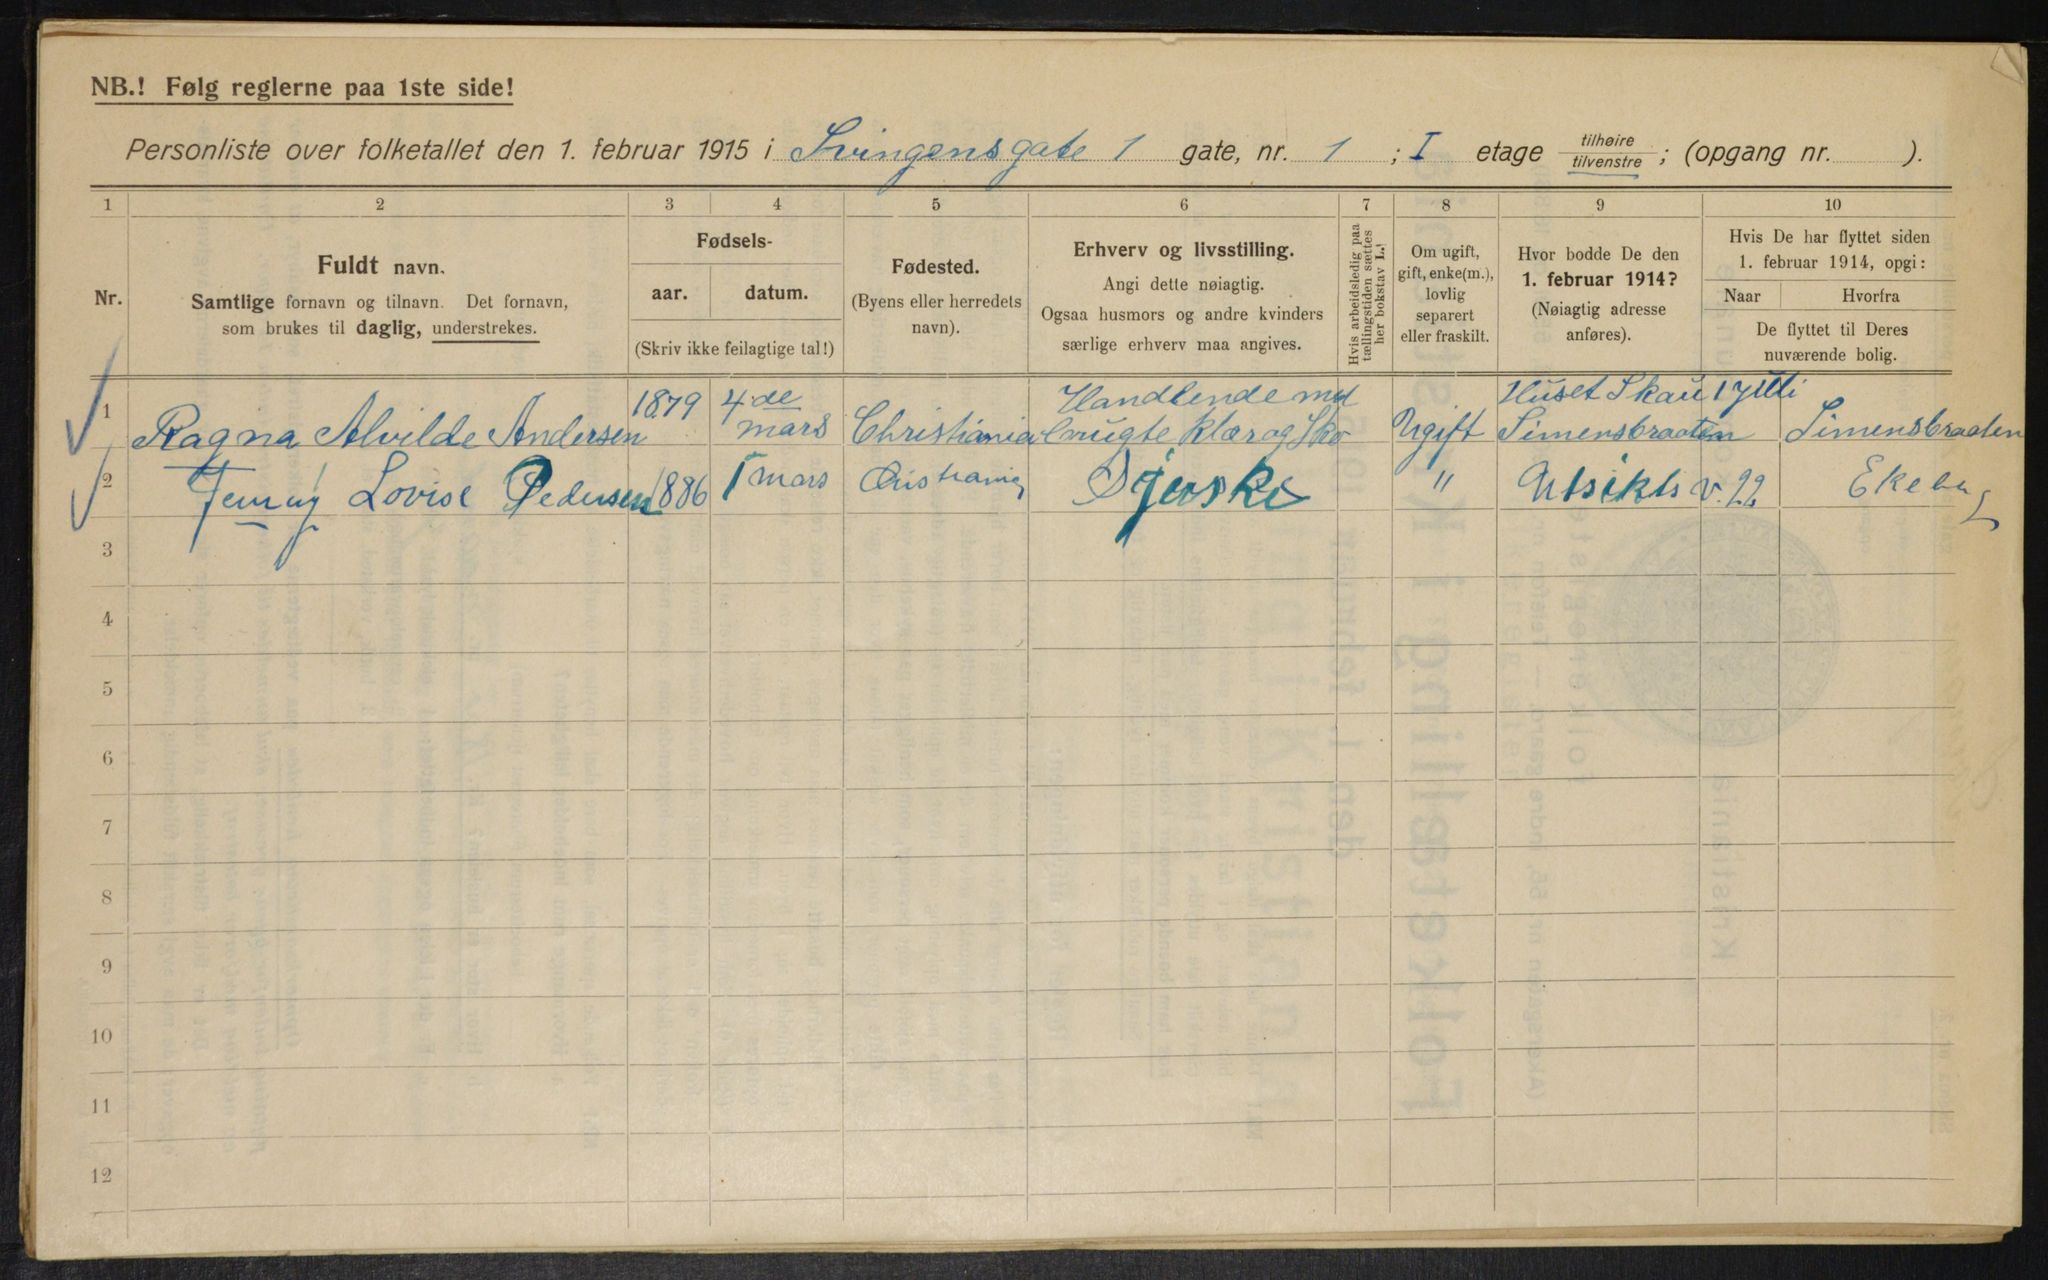 NB.! Følg reglerne paa 1ste side!
Personliste over folketallet den 1. februar 1915 i Svingensgate 1 gate, nr. 1; I etage tilhøire / tilvenstre; (opgang nr. ).
1 2 3 4 5 6 7 8 9 10
Nr.
Fuldt navn.
Samtlige fornavn og tilnavn. Det fornavn,
som brukes til daglig, understrekes.
Fødsels-
aar. datum.
(Skriv ikke feilagtige tal!)
Fødested.
(Byens eller herredets
navn).
Erhverv og livsstilling.
Angi dette nøiagtig.
Ogsaa husmors og andre kvinders
særlige erhverv maa angives.
Hvis arbeidsledig paa
tællingstiden sættes
her bokstav L.!
Om ugift,
gift, enke(m.),
lovlig
separert
eller fraskilt.
Hvor bodde De den
1. februar 1914?
(Nøiagtig adresse
anføres).
Hvis De har flyttet siden
1. februar 1914, opgi:
Naar Hvorfra
De flyttet til Deres
nuværende bolig.
1 Ragna Alvilde Andersen 1879 4de mars Christiania Handlende med brugte klær og Sko Ugift Huset Skau Simensbraaten 1 Juli Simensbraaten
2 Jenny Lovise Pedersen 1886 1 mars Cristiania " Utsikts v. 22 Ekeberg
3
4
5
6
7
8
9
10
11
12